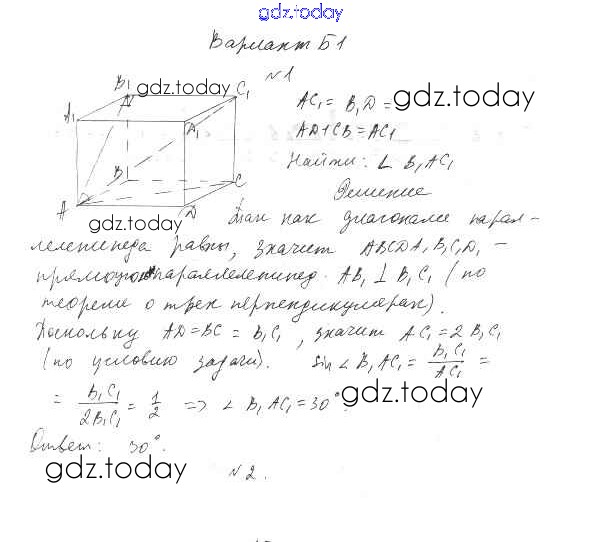 gdz.today
Вариант Б1
№1
B₁ gdz.today C₁
A₁ Д₁
B C
A Д
gdz.today
AC₁ = B₁Д = gdz.today
АД + CB = AC₁
Найти: ∠ B₁AC₁
Решение
Так как диагонали парал-
лелепипеда равны, значит ABCДA₁B₁C₁Д₁ –
прямоуг. параллелепипед. AB₁ ⊥ B₁C₁ (по
теореме о трех перпендикулярах).
Поскольку АД = BC = B₁C₁, значит AC₁ = 2B₁C₁
(по условию задачи). sin ∠ B₁AC₁ = B₁C₁/AC₁ =
= B₁C₁/2B₁C₁ = 1/2 => ∠ B₁AC₁ = 30°.
gdz.today
Ответ: 30°.
gdz.today
№2.